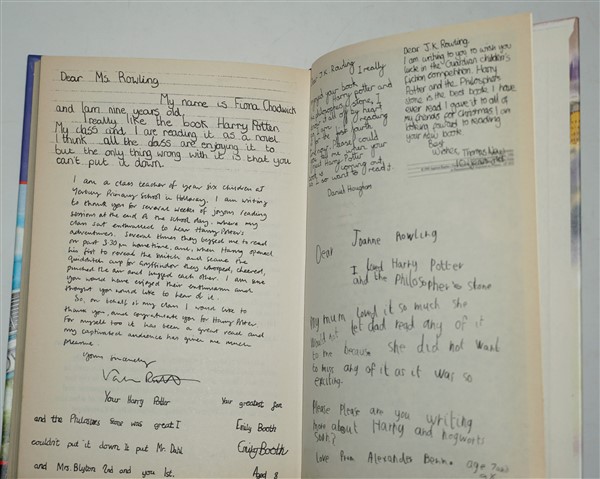 Dear Ms Rowling
My name is Fiona Chadwick
and I am nine years old.
I really like the book Harry Potter.
My class and I are reading it as a novel.
I think all the class are enjoying it to
but the only thing wrong with it is that you
can't put it down.
I am a class teacher of year six children at
Yerbury Primary School in Holloway. I am writing
to thank you for several weeks of joyous reading
session at the end of the school day, where my
class sat enthralled to hear Harry Potter's
adventures. Several times they begged me to read
on past 3:30pm home time, and, when Harry opened
his fist to reveal the Snitch and secure the
Quidditch cup for Gryffindor they whooped, cheered,
punched the air and hugged each other. I am sure
you would have enjoyed their enthusiasm and
thought you would like to hear of it.
So, on behalf of my class I would like to
thank you, and congratulate you for Harry Potter
For myself too it has been a great read and
my captivated audience has given me much
pleasure.
Yours sincerely
Your Harry Potter Your greatest fan
and the Philosophers Stone was great I Emily Booth
couldn't put it down I put Mr. Dahl Emily Booth
and Mrs. Blyton 2nd and you 1st. Aged 8
J.K. Rowling
I really
your book
Harry Potter and
stone, I
it all off by heart
for the fourth
could
me when your
Harry Potter
coming out,
so want to read it.
Daniel Hougham
Dear J.K. Rowling.
I am writing to you to wish you
luck in the Guardian children's
fiction competition. Harry
Potter and the Philosophers
stone is the best book I have
ever read I gave it to all of
my friends for Christmas I am
looking forward to reading
your new book
Best
wishes Thomas
Dear Joanne Rowling
I loved Harry Potter
and the Philosopher's stone
My mum loved it so much she
would not let dad read any of it
to me because she did not want
to miss any of it as it was so
exciting.
Please Please are you writing
more about Harry and hogwarts
soon?
Love From Alexander Benn. age